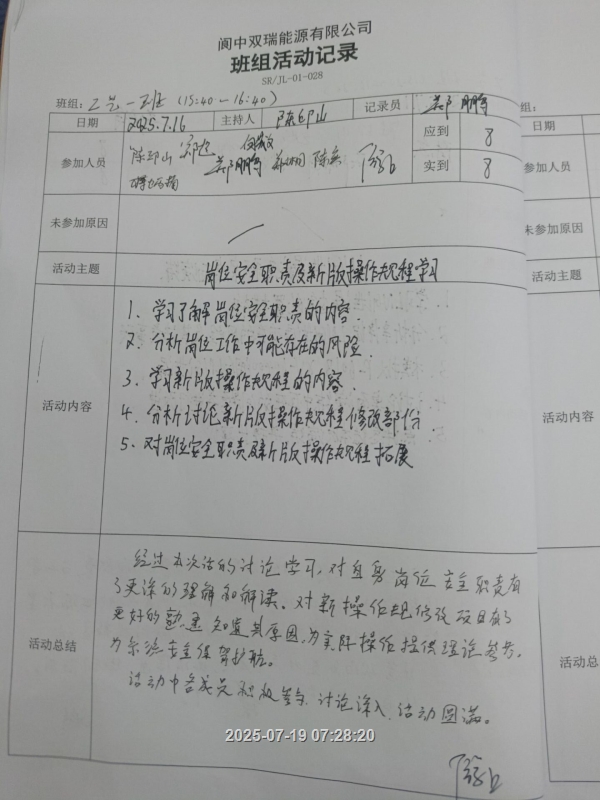 阆中双瑞能源有限公司
班组活动记录
SR/JL-01-028
班组：工艺一班 (15:40-16:40)
组：
日期 2025.7.16 主持人 陈邱山 记录员 郑鹏
日期
参加人员 陈邱山 郑鹏 陈奕 应到 8
实到 8
参加人员
未参加原因
未参加原因
活动主题 岗位安全职责及新版操作规程学习
活动主题
活动内容
1、学习了解岗位安全职责的内容.
2、分析岗位工作中可能存在的风险.
3、学习新版操作规程的内容.
4、分析讨论新版操作规程修改部份.
5、对岗位安全职责及新版操作规程拓展
活动内容
活动总结
经过本次活动的讨论学习，对自身岗位安全职责有
了更深的理解和解读、对新操作规修改项目有了
更好的熟悉 知道其原因，为实际操作提供理论参考。
为系统安全保驾护航。
活动中各成员积极参与、讨论深入、活动圆满。
活动总
2025-07-19 07:28:20